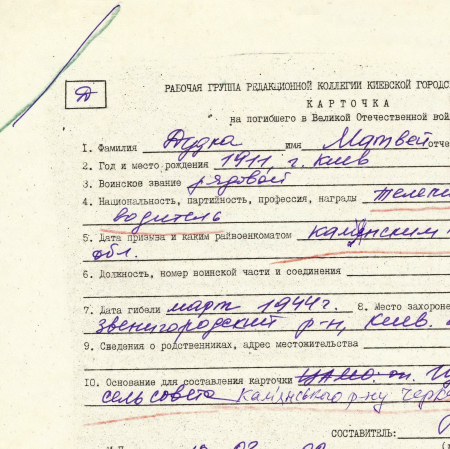 Д
РАБОЧАЯ ГРУППА РЕДАКЦИОННОЙ КОЛЛЕГИИ КИЕВСКОЙ ГОРОДС
КАРТОЧКА
на погибшего в Великой Отечественной вой
1. Фамилия Дудка имя Матвей отче
2. Год и место рождения 1911, г. Киев
3. Воинское звание рядовой
4. Национальность, партийность, профессия, награды
водитель
5. Дата призыва и каким райвоенкоматом
обл.
6. Должность, номер воинской части и соединения
7. Дата гибели март 1944г. 8. Место захороне
Звенигородский р-н, Киев.
9. Сведения о родственниках, адрес местожительства
10. Основание для составления карточки ЦАМО. оп.
сельсовета Кам'янського р-ну Черка
СОСТАВИТЕЛЬ: